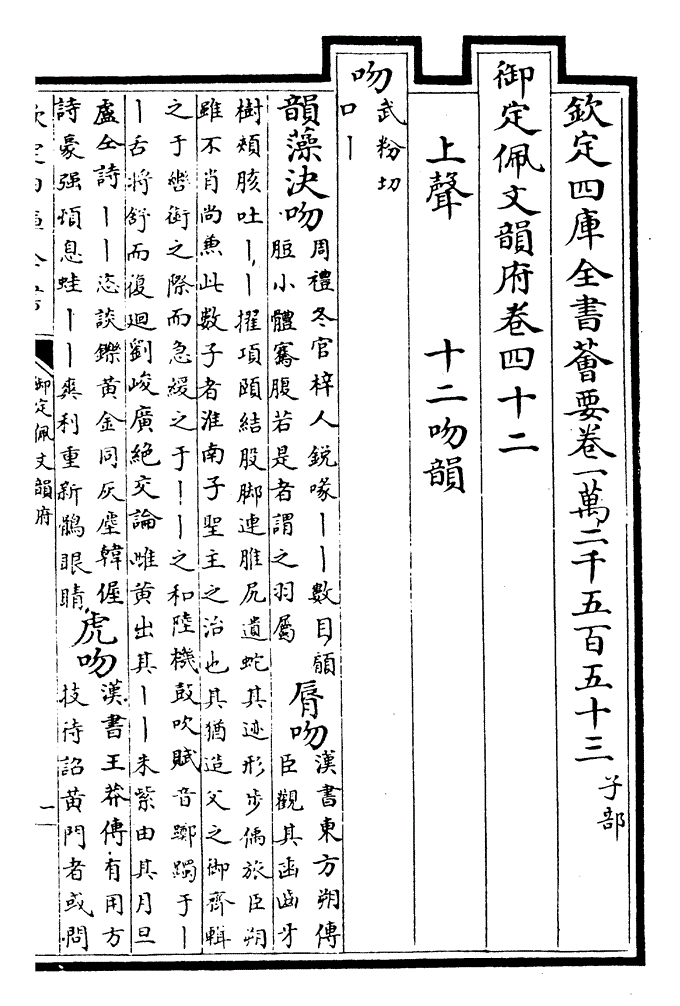 欽定四庫全書薈要卷一萬二千五百五十三 子部
御定佩文韻府卷四十二
上聲 十二吻韻
吻 武粉切
口丨
韻藻決吻 周禮冬官梓人鋭喙丨丨數目顅
脰小體騫腹若是者謂之羽屬 脣吻 漢書東方朔傳
臣觀其臿齒牙
樹頰胲吐丨丨擢項頤結股脚連脽尻遺蛇其迹形步偊旅臣朔
雖不肖尚兼此數子者淮南子聖主之治也其猶造父之御齊輯
之于轡銜之際而急緩之于丨丨之和陸機鼓吹賦音躑躅于丨
丨舌將舒而復廻劉峻廣絶交論雌黄出其丨丨朱紫由其月旦
盧仝詩丨丨恣談鑠黄金同灰塵韓偓
詩豪强頃息蛙丨丨爽利重新鶻眼睛 虎吻 漢書王莽傳有用方
技待詔黄門者或問
御定佩文韻府
一